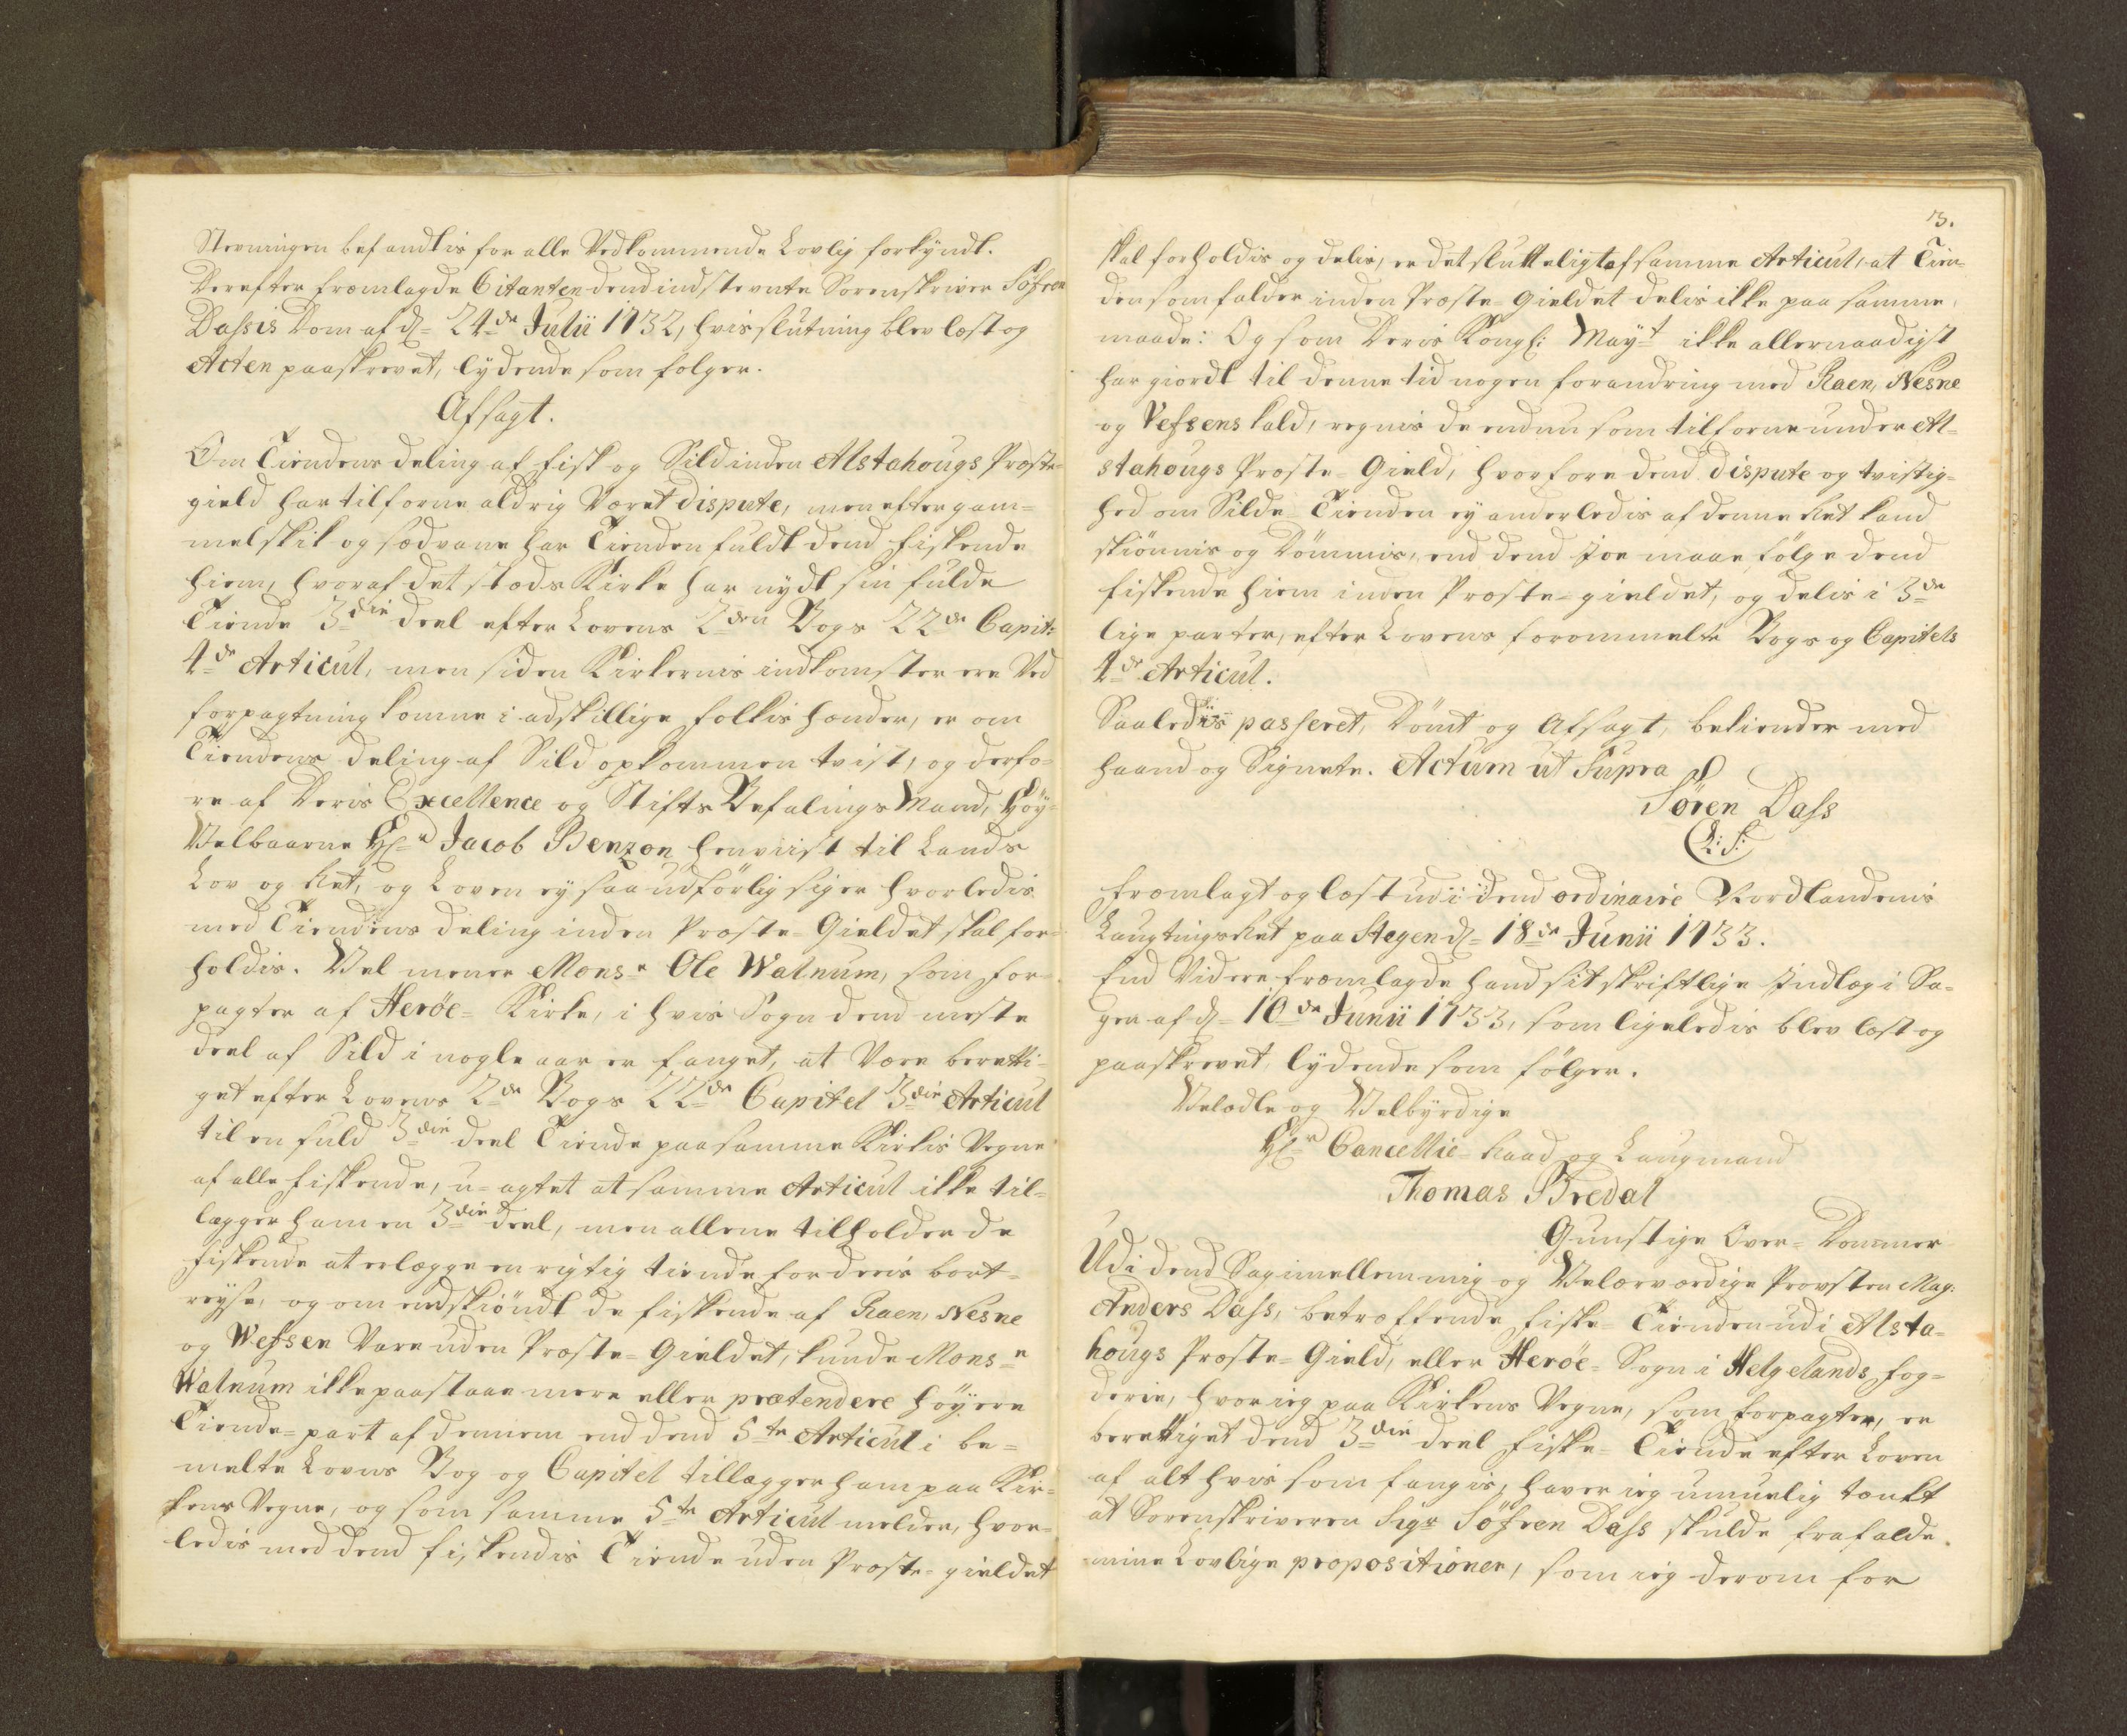 Stevningen befandtis for alle Vedkommende Lovlig forkyndt.
Derefter fremlagde Citanten dend indstevnte Sorenskriver Söfren
Dassis Dom af d. 24de Julii 1732, hvis slutning blev læst og
Acten paaskrevet, lydende som følger.
Afsagt.
Om Tiendens deling af fisk og Sild inden Alstahougs Præste-
gield har tilforne aldrig Været dispute, men efter gam-
mel skik og sædvane har Tienden fuldt dend fiskende
hiem, hvoraf det stæds Kirke har nydt sin fulde
Tiende 3die deel efter Lovens 2den Bogs 22de Capit:
4de Articul, men siden Kirkernis indkomster ere Ved
forpagtning komne i adskillige folkis hænder, er om
Tiendens deling af Sild opkommen tvist, og derfo-
re af Deris Excellence og Stifts Befalings Mand, Höy-
Velbaarne Hr Jacob Benzon henviist til Lands
Lov og Ret, og Loven ey saa udförlig siger hvorledis
med Tiendens deling inden Præste-Gieldet skal for-
holdis. Vel mener Monsr Ole Walnum, som for-
pagter af Heröe-Kirke, i hvis Sogn dend meste
deel af Sild i nogle aar er fanget, at Være beretti-
get efter Lovens 2de Bogs 22de Capitel 3die Articul
til en fuld 3die deel Tiende paa samme Kirkis Vegne
af alle fiskende, u-agtet at samme Articul ikke til-
lægger ham en 3die deel, men allene tilholder de
fiskende at erlægge en rigtig tiende for deris bort-
reyse, og om endskiöndt de fiskende af Raen, Nesne
og Wefsen Vare uden Præste-Gieldet, kunde Monsr
Walnum ikke paastaae mere eller prætendere höyere
Tiende-part af dennem end dend 5te Articul i be-
melte Lovens Bog og Capitel tillægger ham paa Kir-
kens Vegne, og som samme 5te Articul melder, hvor-
ledis med dend fiskendis Tiende uden Præste-gieldet
3.
skal forholdis og delis, er det slutteligt af samme Articul, at Tien-
den som falder inden Præste-Gieldet delis ikke paa samme
maade: Og som Deris Kongl: Mayt ikke allernaadigst
har giordt til denne tid nogen forandring med Raen, Nesne
og Vefsens kald, regnis de endnu som tilforne under Al-
stahougs Præste-Gield, hvorfore dend dispute og tvistig-
hed om Silde Tienden ey anderledis af denne Ret kand
skiönnis og Dömmis, end dend jo maae fölge dend
fiskende hiem inden Præste-gieldet, og delis i 3de
lige parter, efter Lovens forommelte Bogs og Capitels
4de Articul.
Saaledis passeret, Dömt og Afsagt, bekiender med
haand og Signete. Actum ut Supra
Sören Dass
(L: S:)
fremlagt og læst udi dend ordinaire Nordlandenis
Laugtings Ret paa Stegen d. 18de Junii 1733.
End Videre fremlagde hand sit skriftlige Indlæg i Sa-
gen af d. 10de Junii 1733, som ligeledis blev læst og
paaskrevet, lydende som fölger.
Velædle og Velbÿrdige
Hr Cancellie-Raad og Laugmand
Thomas Bredal
Gunstige Over-Dommer
Udi dend Sag imellem mig og Velærværdige Provsten Mag:
Anders Dass, betræffende fiske-Tienden udi Alsta-
hougs Præste-Gield, eller Heröe-Sogn i Helgelands fog-
derie, hvor ieg paa Kirkens Vegne, som forpagter, er
berettiget dend 3die deel fiske-Tiende efter Loven
af alt hvis som fangis, haver ieg umuelig tænkt
at Sorenskriveren Sigr Söfren Dass skulde frafalde
mine Lovlige propositioner, som ieg derom for